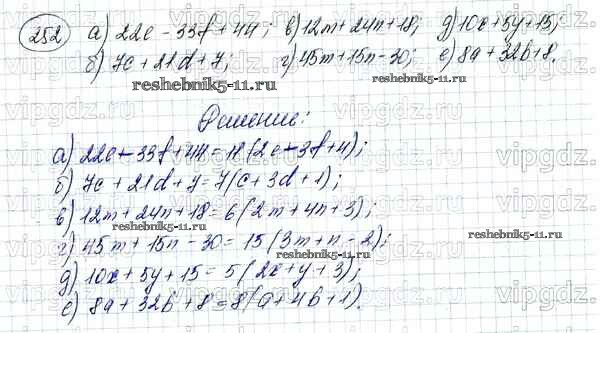 252 а) 22e - 33f + 44; в) 12m + 24n + 18; д) 10x + 5y + 15;
б) 7c + 21d + 7; г) 45m + 15n - 30; е) 8a + 32b + 8.
reshebnik5-11.ru reshebnik5-11.ru
Решение:
а) 22e - 33f + 44 = 11(2e - 3f + 4);
б) 7c + 21d + 7 = 7(c + 3d + 1);
в) 12m + 24n + 18 = 6(2m + 4n + 3);
г) 45m + 15n - 30 = 15(3m + n - 2);
reshebnik5-11.ru
д) 10x + 5y + 15 = 5(2x + y + 3);
reshebnik5-11.ru
е) 8a + 32b + 8 = 8(a + 4b + 1).
vipgdz.ru vipgdz.ru vipgdz.ru